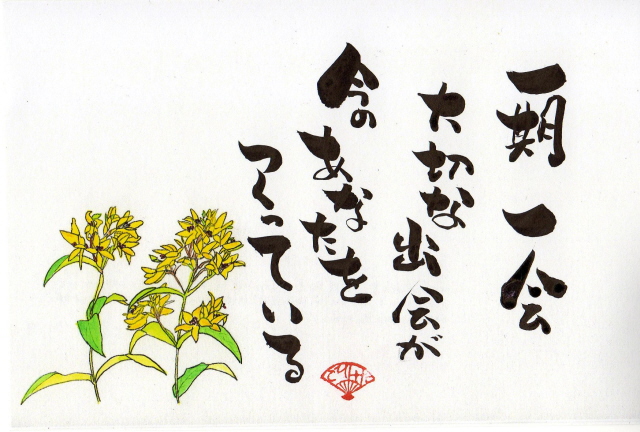 一期一会
大切な出会が
今の
あなたを
つくっている